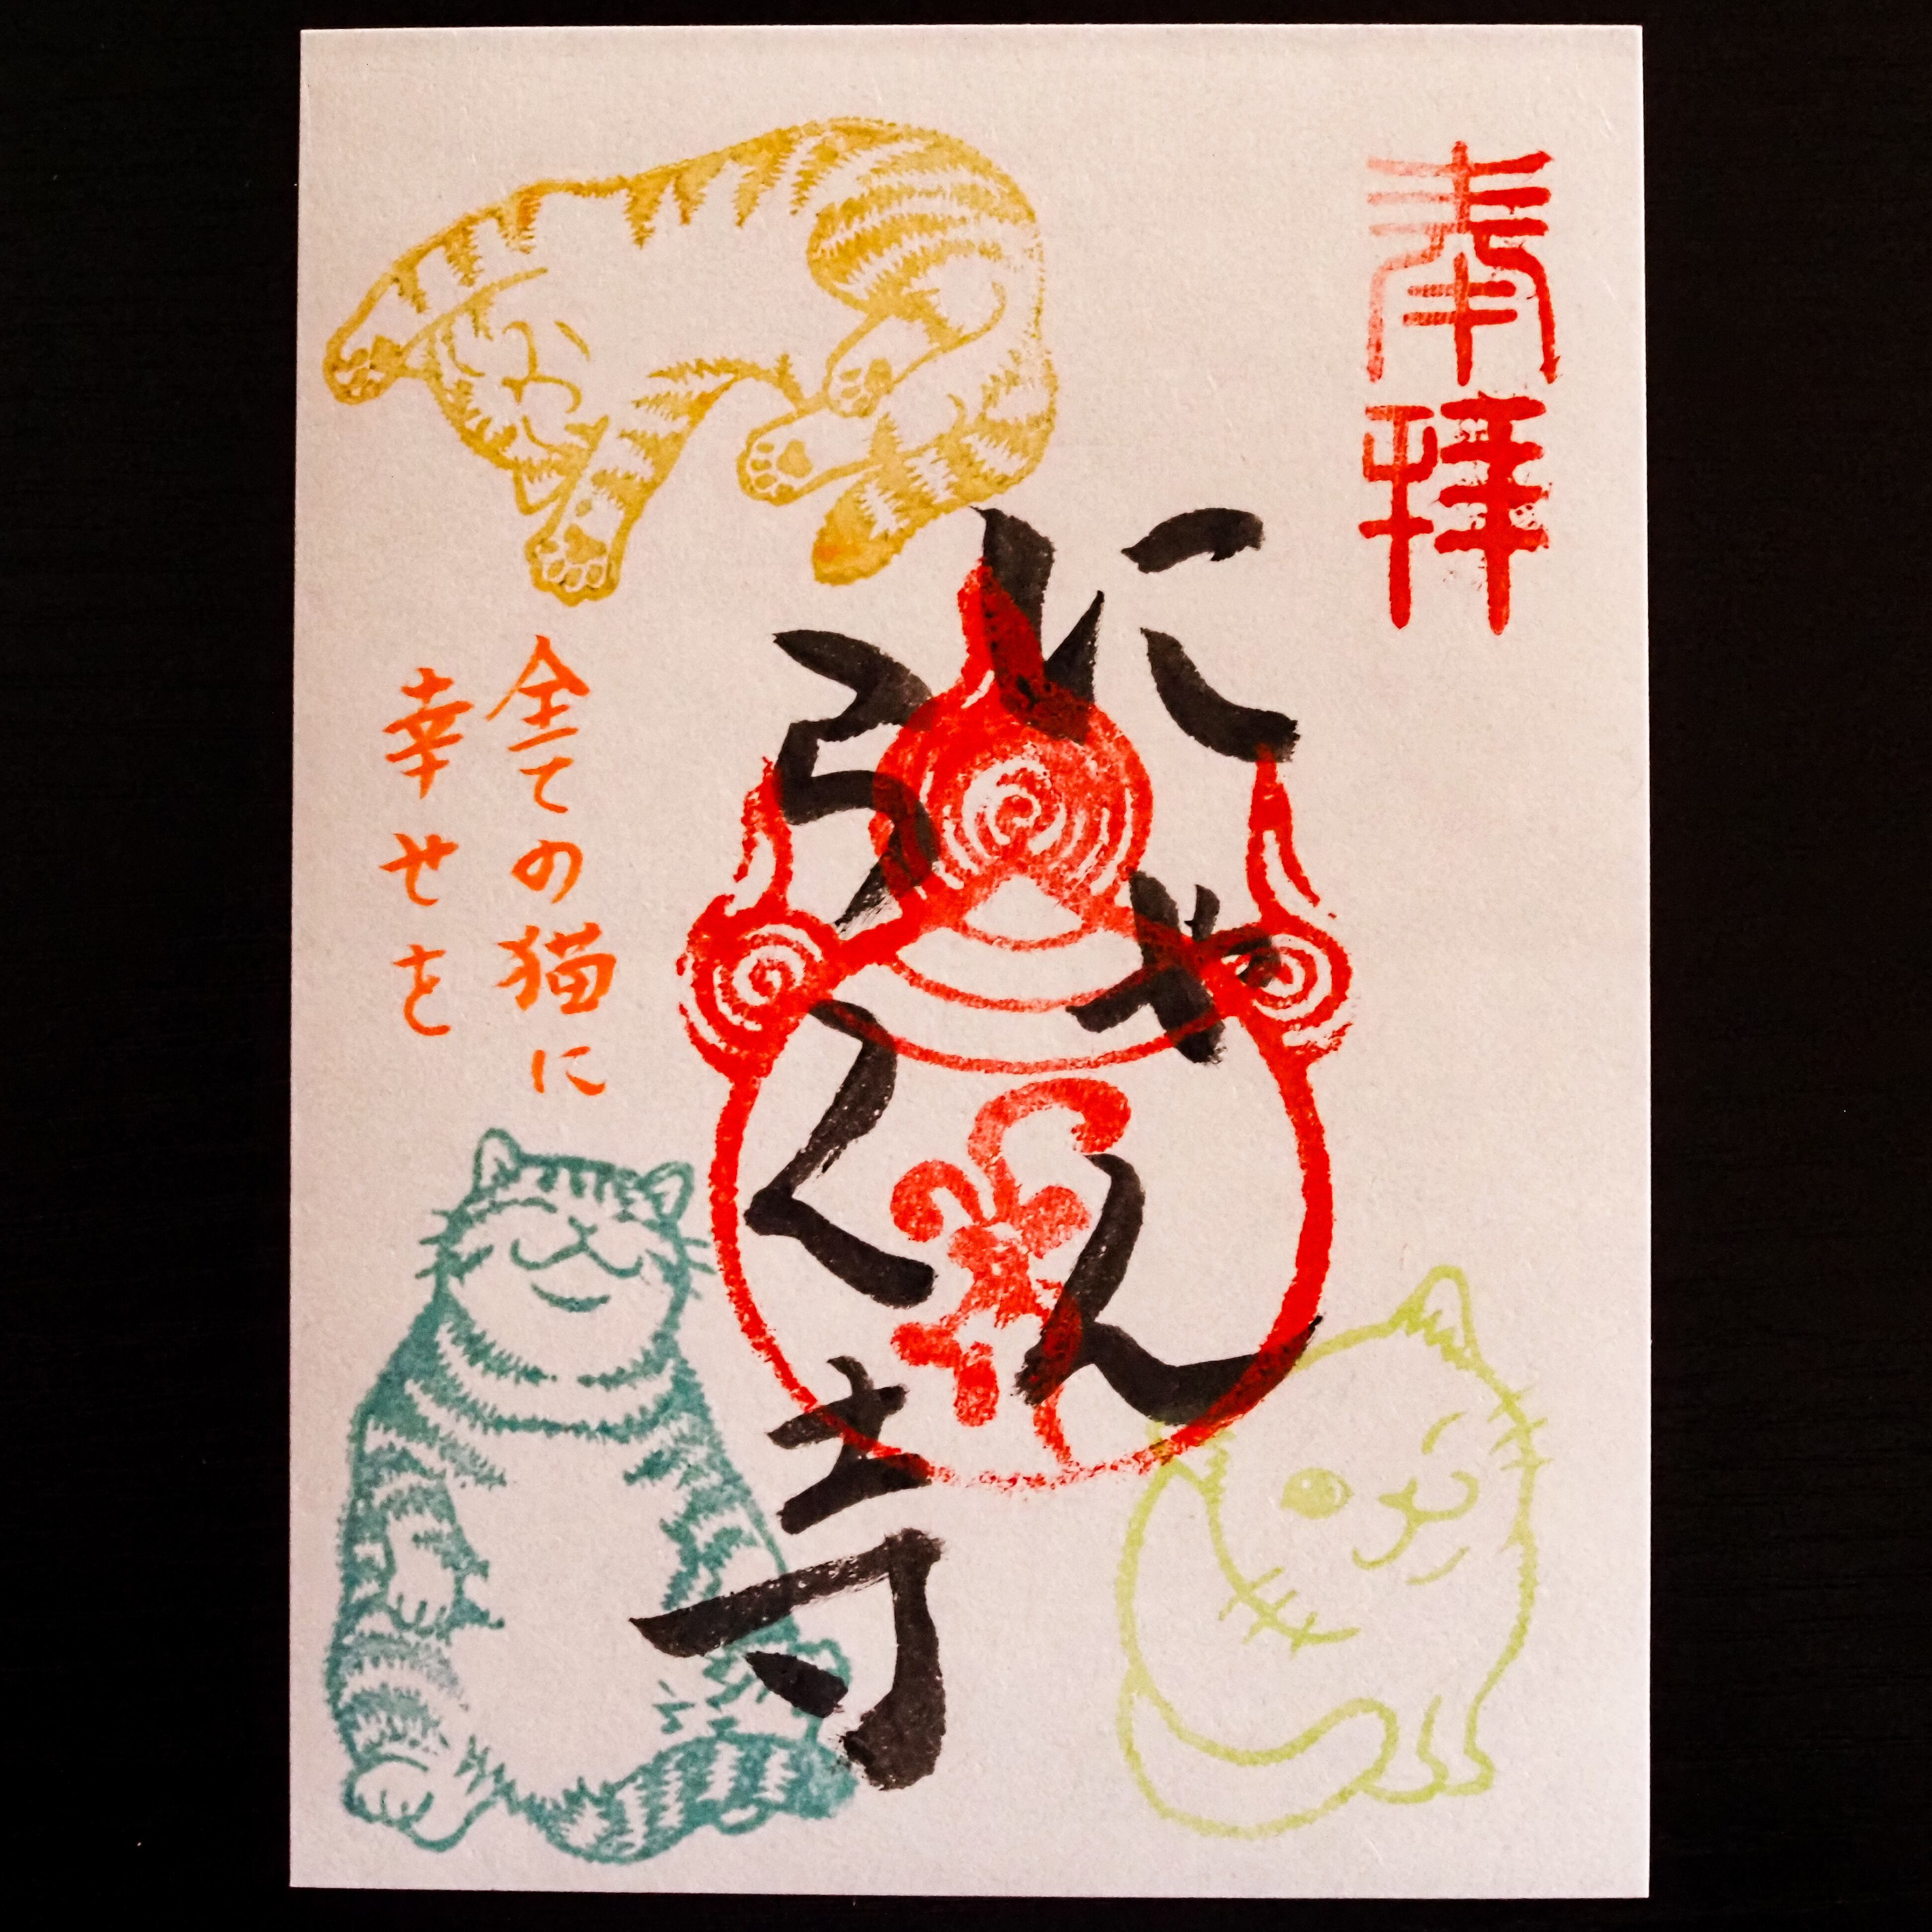 奉拝
にゃん
らく寺
全ての猫に
幸せを